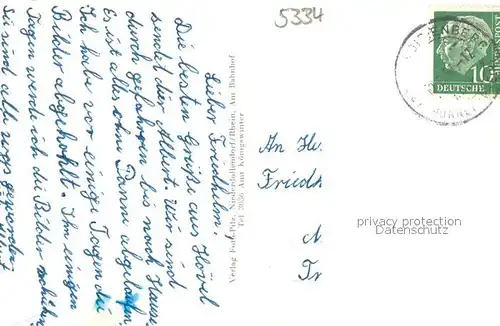 5334
Lieber Friedhelm!
Die besten Grüße aus Hövel
sendet dir Albert. Wir sind
durch gefahren bis nach Hause.
Es ist alles ohne Panne abgelaufen.
Ich habe vor einige Tagen die
Bilder abgehohlt. In einigen
Tagen werde ich die Bilder schicken
Sie sind alle
Verlag Foto-Pilz, Niederdollendorf/Rhein, Am Bahnhof
Tel. 2036 Amt Königswinter
An He
Friedh
DEUTSCHE
BUNDESPOST
10
privacy protection
Datenschutz